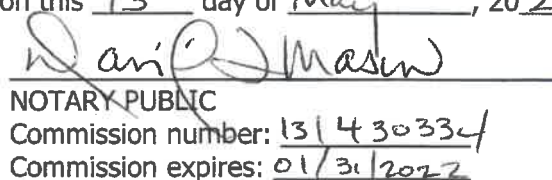 on this 13 day of May, 202
David J Mason
NOTARY PUBLIC
Commission number: 131430334
Commission expires: 01/31/2022